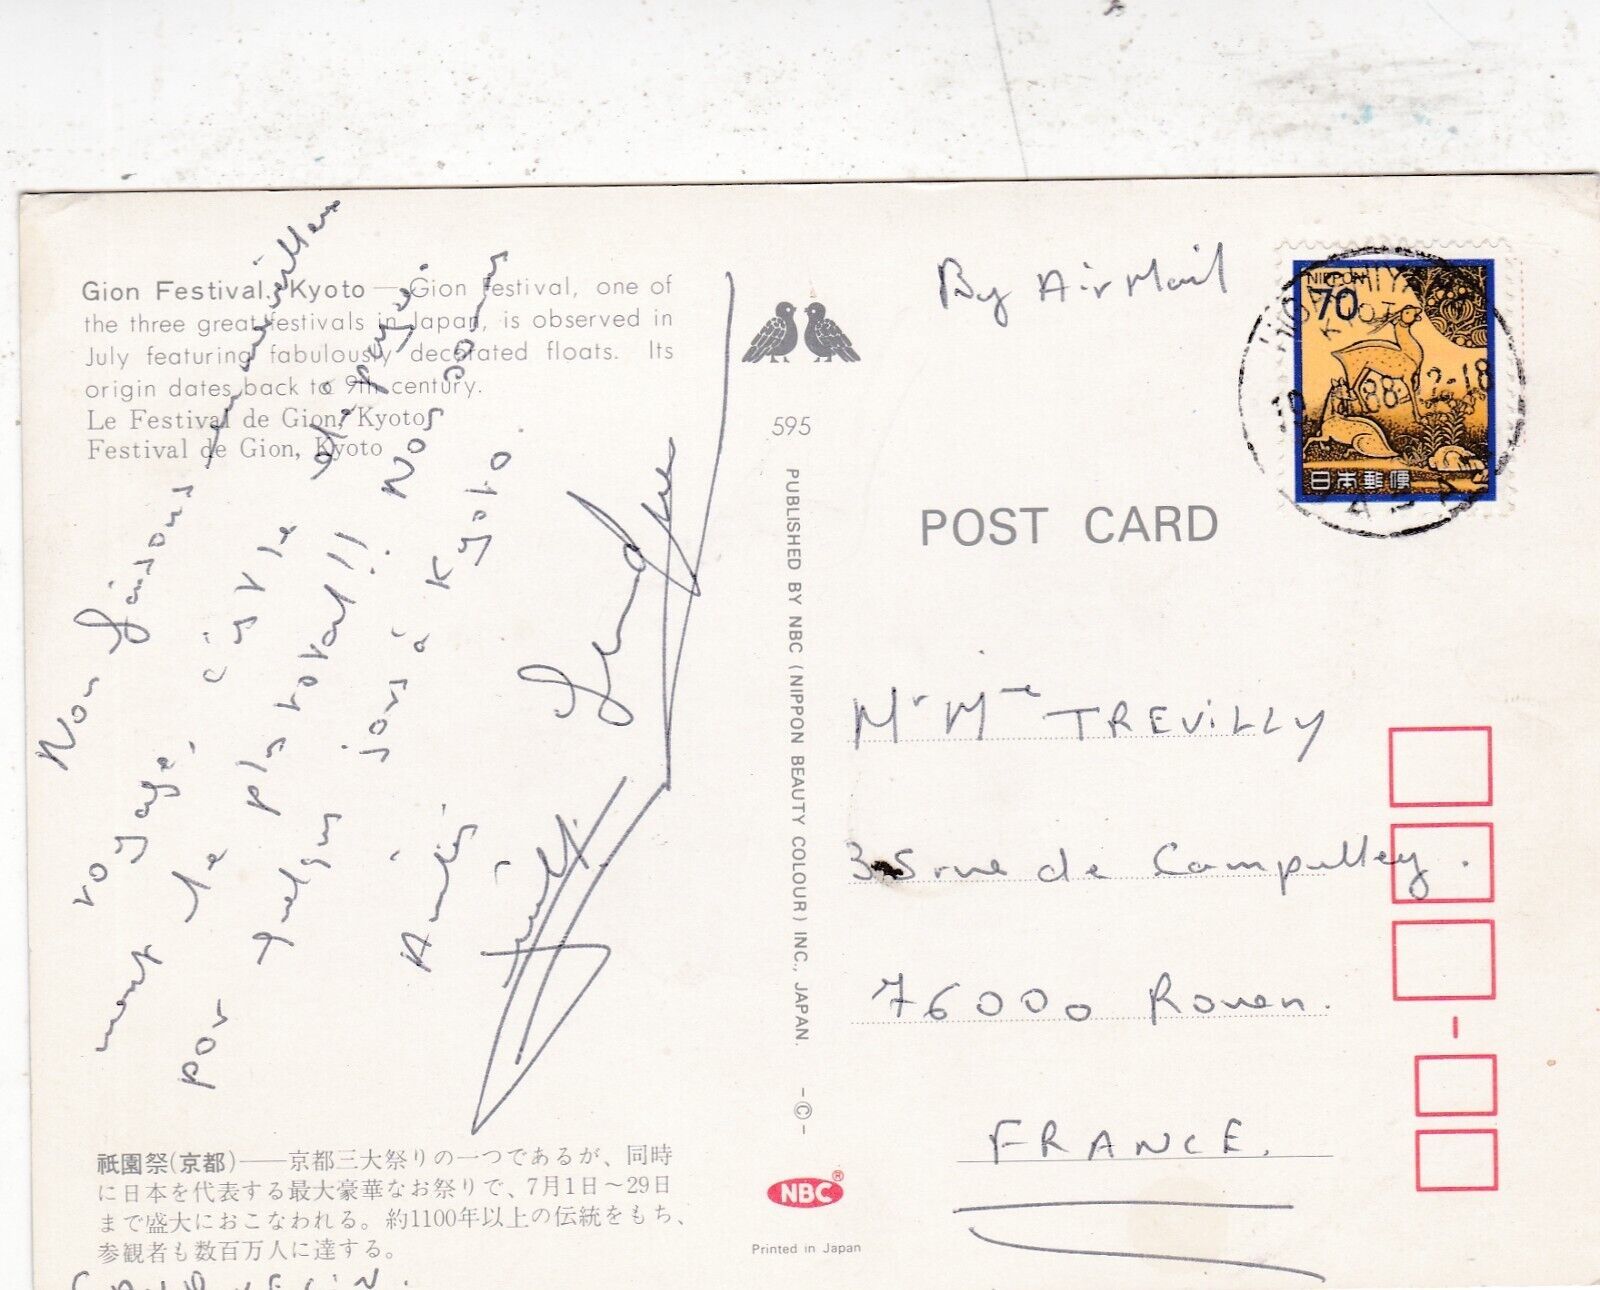 Gion Festival, Kyoto — Gion Festival, one of
the three great festivals in Japan, is observed in
July featuring fabulously decorated floats. Its
origin dates back to 9th century.
Le Festival de Gion, Kyoto
Festival de Gion, Kyoto
Nous faisons un merveilleux
voyage, c'est le dépaysement
le plus total!! Nous sommes
pour quelques jours à Kyoto
Amitiés
祇園祭(京都)——京都三大祭りの一つであるが、同時
に日本を代表する最大豪華なお祭りで、7月1日〜29日
まで盛大におこなわれる。約1100年以上の伝統をもち、
参観者も数百万人に達する。
595
PUBLISHED BY NBC (NIPPON BEAUTY COLOUR) INC., JAPAN. –©–
NBC®
Printed in Japan
By Air Mail
NIPPON
70
日本郵便
KYOTO
88
POST CARD
Mr Mme TREVILLY
35 rue de Campulley.
76000 Rouen.
FRANCE.